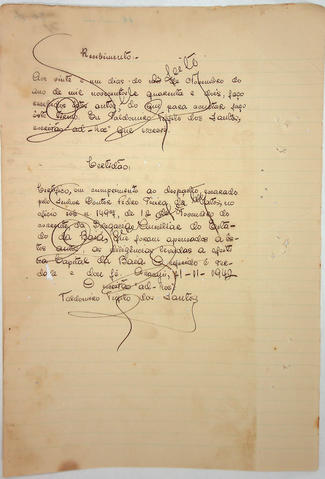 Recebimento.
Aos vinte e um dias do mês de Novembro do
ano de mil novecentos e quarenta e dois, faço
estes autos, do que para constar faço
este termo. Eu Taldomiro dos Santos,
escrivão "ad-hoc" que escrevi.
Feito
Certidão:
Certifico, em cumprimento ao despacho, exarado
pelo Senhor Doutor Pedro de Matos, no
ofício sob n 1494, de 18 de Novembro do
corrente, da Delegacia Auxiliar do Esta-
do da Baía, que foram apensadas a es-
tes autos, as diligências levadas a efeito
na Capital da Baía. O referido é ver-
dade e dou fé. Aracajú, 21-11-1942
O escrivão "ad-hoc"
Taldomiro dos Santos